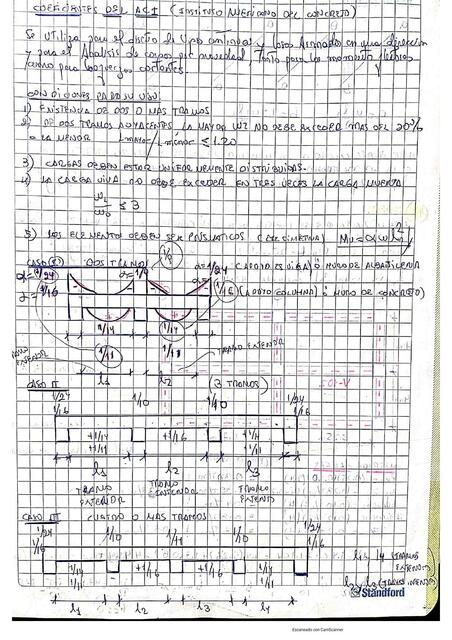 COEFICIENTES DEL ACI (INSTITUTO AMERICANO DEL CONCRETO)
Se utiliza para el diseño de vigas continuas y losas armadas en una dirección
y para el Analisis de cargas por gravedad, tanto para los momentos flectores
como para los fuerzas cortantes.
CONDICIONES PARA SU USO:
1) EXISTENCIA DE DOS O MAS TRAMOS
2) DE DOS TRAMOS ADYACENTES, LA MAYOR LUZ NO DEBE EXCEDER MAS DEL 20%
A LA MENOR L mayor / L menor ≤ 1.20
3) CARGAS DEBEN ESTAR UNIFORMEMENTE DISTRIBUIDAS.
4) LA CARGA VIVA NO DEBE EXCEDER EN TRES VECES LA CARGA MUERTA
WL / WD ≤ 3
5) LOS ELEMENTO DEBEN SER PRISMATICOS Mu = α w ln²
CASO (I) DOS TRAMO 1/9 1/24 (APOYO ES VIGA) Ó MURO DE ALBAÑILERIA
α=1/24
α=1/16 1/16 (APOYO COLUMNA) Ó MURO DE CONCRETO)
1/14 1/14
1/11 1/11
TRAMO EXTERIOR TRAMO EXTERIOR
l1 l2
CASO II (3 TRAMOS)
1/24 1/10 1/10 1/24
1/16 1/16
+1/14 +1/16 +1/14
+1/11 +1/11
l1 l2 l3
TRAMO EXTERIOR TRAMO INTERIOR TRAMO EXTERIOR
CASO III CUATRO O MAS TRAMOS
1/24 1/10 1/11 1/10 1/24
1/16 1/16
1/14 +1/16 +1/16 1/14
1/11 1/11
l1 l2 l3 l4
l1, l4 (TRAMOS EXTERIOR)
l2, l3 (TRAMOS INTERIOR)
Standford
Escaneado con CamScanner